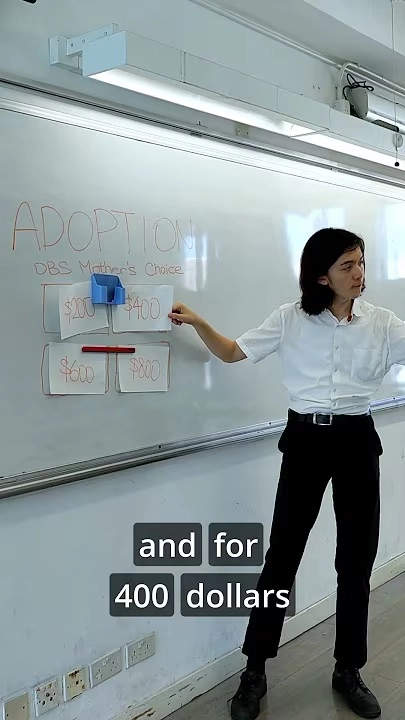 ADOPTION
DBS Mother's Choice
$200 $400
$600 $800
and for
400 dollars